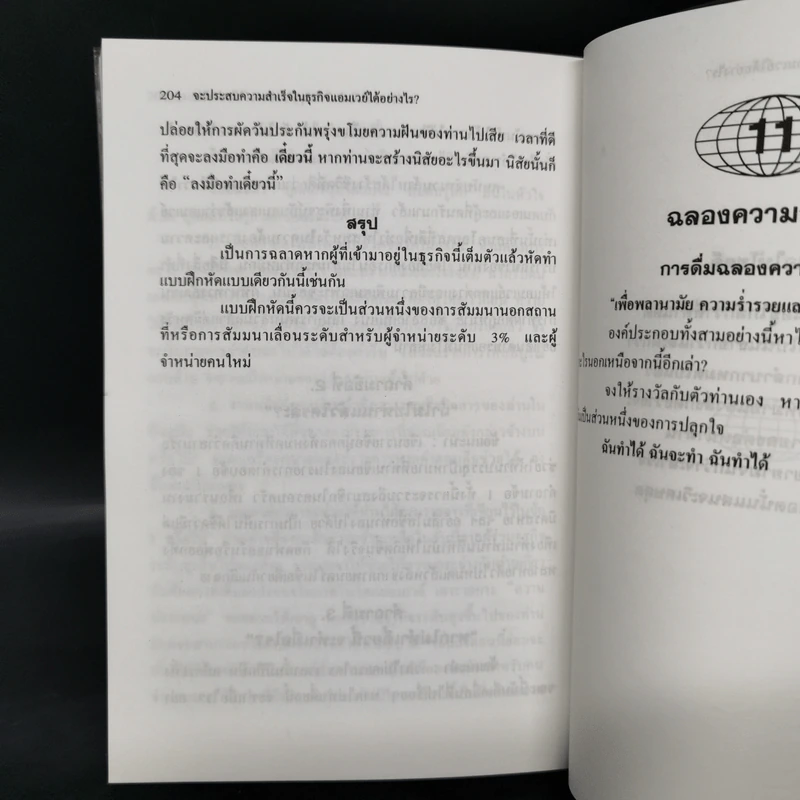 204 จะประสบความสำเร็จในธุรกิจแอมเวย์ได้อย่างไร?
ปล่อยให้การผัดวันประกันพรุ่งขโมยความฝันของท่านไปเสีย เวลาที่ดี
ที่สุดจะลงมือทำคือ เดี๋ยวนี้ หากท่านจะสร้างนิสัยอะไรขึ้นมา นิสัยนั้นก็
คือ “ลงมือทำเดี๋ยวนี้”
สรุป
เป็นการฉลาดหากผู้ที่เข้ามาอยู่ในธุรกิจนี้เต็มตัวแล้วหัดทำ
แบบฝึกหัดแบบเดียวกันนี้เช่นกัน
แบบฝึกหัดนี้ควรจะเป็นส่วนหนึ่งของการสัมมนานอกสถาน
ที่หรือการสัมมนาเลื่อนระดับสำหรับผู้จำหน่ายระดับ 3% และผู้
จำหน่ายคนใหม่
11
ฉลองความ
การดื่มฉลองความ
“เพื่อพลานามัย ความร่ำรวยและ
องค์ประกอบทั้งสามอย่างนี้หาไ
ะไรนอกเหนือจากนี้อีกเล่า?
จงให้รางวัลกับตัวท่านเอง หา
เป็นส่วนหนึ่งของการปลุกใจ
ฉันทำได้ ฉันจะทำ ฉันทำได้